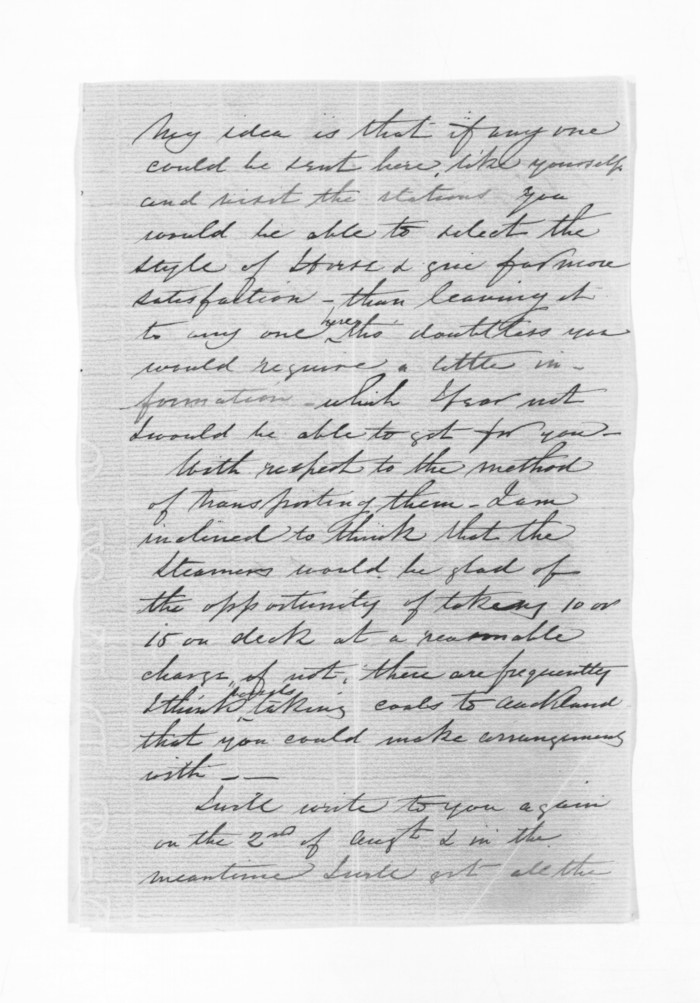 My idea is that if any one
could be sent here, like yourself
and visit the stations you
would be able to select the
style of Horse & give far more
satisfaction - than leaving it
to any one here, tho' doubtless you
would require a little in-
formation - which I fear not
I would be able to get for you -
With respect to the method
of transporting them - I am
inclined to think that the
Steamers would be glad of
the opportunity of taking 10 or
15 on deck at a reasonable
charge, if not, there are frequently
I think vessels taking coals to Auckland
that you could make arrangements
with - -
I will write to you again
on the 2nd of Augt & in the
meantime I will get all the